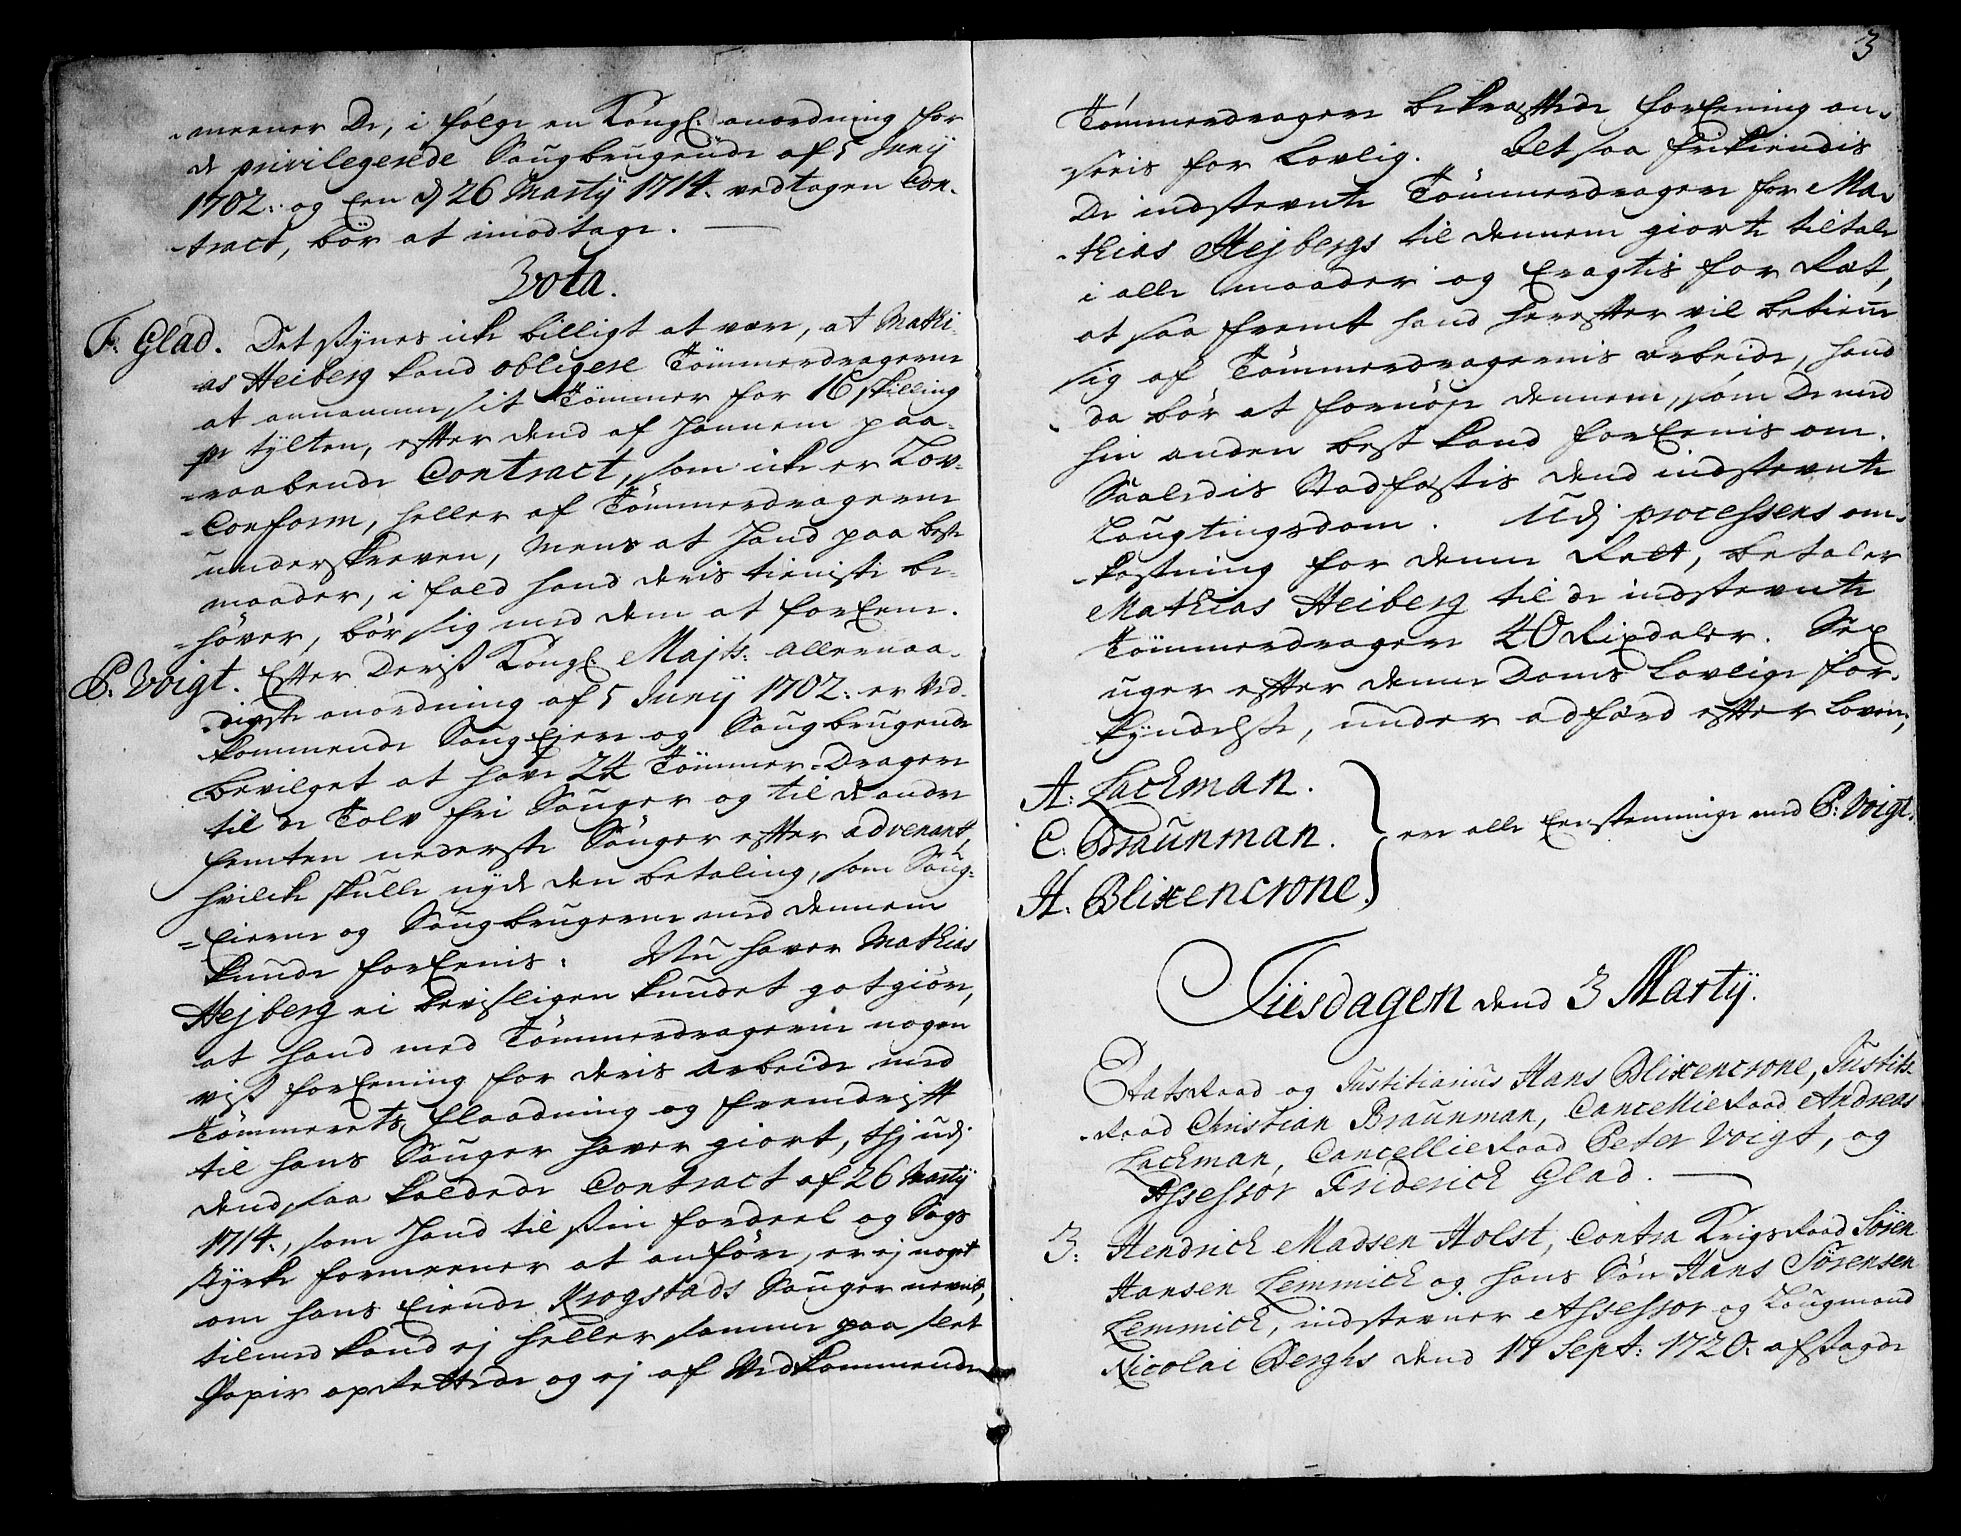 meener De, i følge en Kongl. anordning for
de privilegerede Saugbrugende af 5 Junij
1702. og een d 26 Martij 1714. vedtagen Con-
tract, bør at imodtage.
Vota.
F. Glad. Det siynes icke billigt at være, at Mathi-
as Heiberg kand obligere Tømmerdragerne
at annamme sit Tømmer for 16 skilling
pr tylten, effter dend af hannem paa-
raabende Contract, som icke er Lov-
Conform, heller af Tømmerdragerne
underskreven, Mens at hand paa beste
maader, i fald hand deris tieniste be-
høver, bør sig med dem at forEene.
P. Voigt. Effter Deriß Kongl. Majts: allernaa-
digste anordning af 5 Junij 1702. er Ved-
kommende SaugEjere og Saugbrugende
bevilget at have 24 Tømmer-Dragere
til de Tolv fri Sauger og til de andre
femten nederste Sauger effter advenant,
hvilcke skulle nyde den betaling, som Saug-
Eierne og Saugbrugerne med dennem
kunde forEenis. Nu haver Mathias
Hejberg ei bevisligen kundet gotgiøre,
at hand med Tømmerdragerne nogen
viß forEening for deris arbeide med
Tømmerets flaadning og fremdrifft
til hans Sauger haver giort, thj udj
dend saa kaldede Contract af 26 Martij
1714., som hand til sin fordeel og Sags
styrke formeener at anføre, er ej noget
om hans Eiende Krogstads Sauger nevnt,
tilmed kand ej heller samme paa slet
Papir oprettede og ej af Vedkommende
3
Tømmerdragere bekrafftede forEening an-
seeis for Lovlig. Alt saa frikiendis
De indstevnte Tømmerdragere for Ma-
thias Hejbergs til dennem giorte tiltale
i alle maader og Eragtis for Ræt,
at saa fremt hand hereffter vil betiene
sig af Tømmerdragernis arbeide, hand
da bør at fornøje dennem, som De med
hin anden best kand forEenis om.
Saaledis Stadfæstis dend indstevnte
Laugtingsdom. Udj processens om-
kostning for denne Ræt, betaler
Mathias Heiberg til de indstevnte
Tømmerdragere 40 Rixdaler. Sex
uger effter denne Doms Lovlige for-
kyndelse, under adfærd effter Loven,
A. Lachman.
C. Braunman. ere alle Eenstemmige med P. Voigt.
H. Blixencrone.
Tiisdagen dend 3 Martij.
EtatsRaad og Justitiarius Hans Blixencrone, Justits-
Raad Christian Braunman, CancellieRaad Andreas
Lachman, CancellieRaad Peter Voigt, og
Assessor Friderich Glad.
3. Hendrich Madsen Holst, Contra KrigsRaad Sören
Hansen Lemmich og hans Søn Hans Sörensen
Lemmich, indstevner Assessor og Laugmand
Nicolai Berghs dend 17 Sept: 1720. afsagde